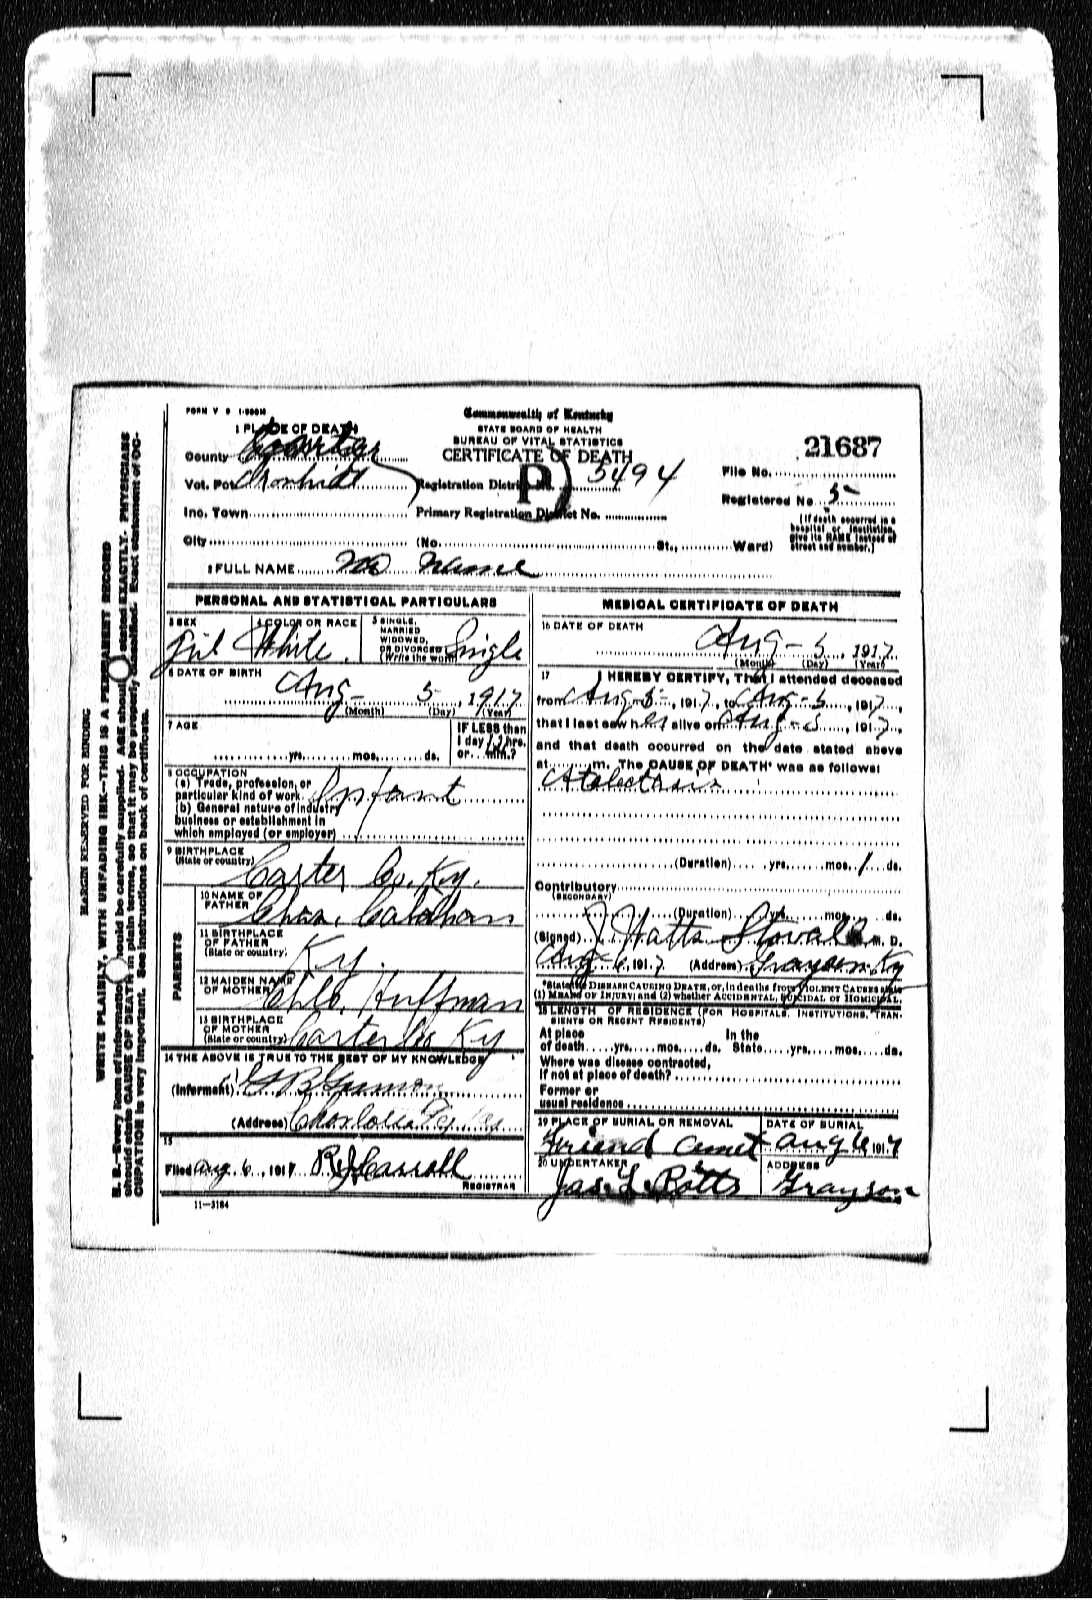 FORM V S 1-
Commonwealth of Kentucky
STATE BOARD OF HEALTH
BUREAU OF VITAL STATISTICS
CERTIFICATE OF DEATH
1 PLACE OF DEATH
County Carter
Vot. Pct.
Inc. Town
City (No. St., Ward)
Registration District No. 5494
P
Primary Registration District No.
21687
File No.
Registered No. 5
(If death occurred in a hospital or institution, give its NAME instead of street and number.)
2 FULL NAME No Name
PERSONAL AND STATISTICAL PARTICULARS
3 SEX Girl
4 COLOR OR RACE White
5 SINGLE, MARRIED WIDOWED, OR DIVORCED (Write the word) Single
6 DATE OF BIRTH Aug - 5, 1917
(Month) (Day) (Year)
7 AGE yrs. mos. ds.
IF LESS than 1 day 12 hrs. or min.?
8 OCCUPATION
(a) Trade, profession, or particular kind of work Infant
(b) General nature of industry business or establishment in which employed (or employer)
9 BIRTHPLACE (State or country) Carter Co. Ky.
PARENTS
10 NAME OF FATHER Chas. Calahan
11 BIRTHPLACE OF FATHER (State or country) Ky.
12 MAIDEN NAME OF MOTHER Huffman
13 BIRTHPLACE OF MOTHER (State or country) Carter Co Ky
14 THE ABOVE IS TRUE TO THE BEST OF MY KNOWLEDGE
(Informant)
(Address)
15
Filed Aug. 6, 1917 R J Carroll
REGISTRAR
11—3184
MEDICAL CERTIFICATE OF DEATH
16 DATE OF DEATH Aug - 5, 1917
(Month) (Day) (Year)
17 I HEREBY CERTIFY, That I attended deceased
from Aug - 5 -, 1917, to Aug - 5, 1917,
that I last saw her alive on Aug - 5, 1917,
and that death occurred on the date stated above
at m. The CAUSE OF DEATH* was as follows:
Atelectasis
(Duration) yrs. mos. 1 ds.
Contributory
(SECONDARY)
(Duration) yrs. mos. ds.
(Signed) J Watts Stovall M. D.
Aug - 6, 1917 (Address) Grayson Ky
*State the DISEASE CAUSING DEATH, or, in deaths from VIOLENT CAUSES state
(1) MEANS OF INJURY; and (2) whether ACCIDENTAL, SUICIDAL or HOMICIDAL.
18 LENGTH OF RESIDENCE (FOR HOSPITALS, INSTITUTIONS, TRANSIENTS OR RECENT RESIDENTS)
At place of death yrs. mos. ds. In the State yrs. mos. ds.
Where was disease contracted,
If not at place of death?
Former or
usual residence
19 PLACE OF BURIAL OR REMOVAL Friend Cemet
DATE OF BURIAL Aug 6 1917
20 UNDERTAKER Jas. L. Potts
ADDRESS Grayson
MARGIN RESERVED FOR BINDING
WRITE PLAINLY, WITH UNFADING INK—THIS IS A PERMANENT RECORD
N. B.—Every item of information should be carefully supplied. AGE should be stated EXACTLY. PHYSICIANS
should state CAUSE OF DEATH in plain terms, so that it may be properly classified. Exact statement of OC-
CUPATION is very important. See instructions on back of certificate.